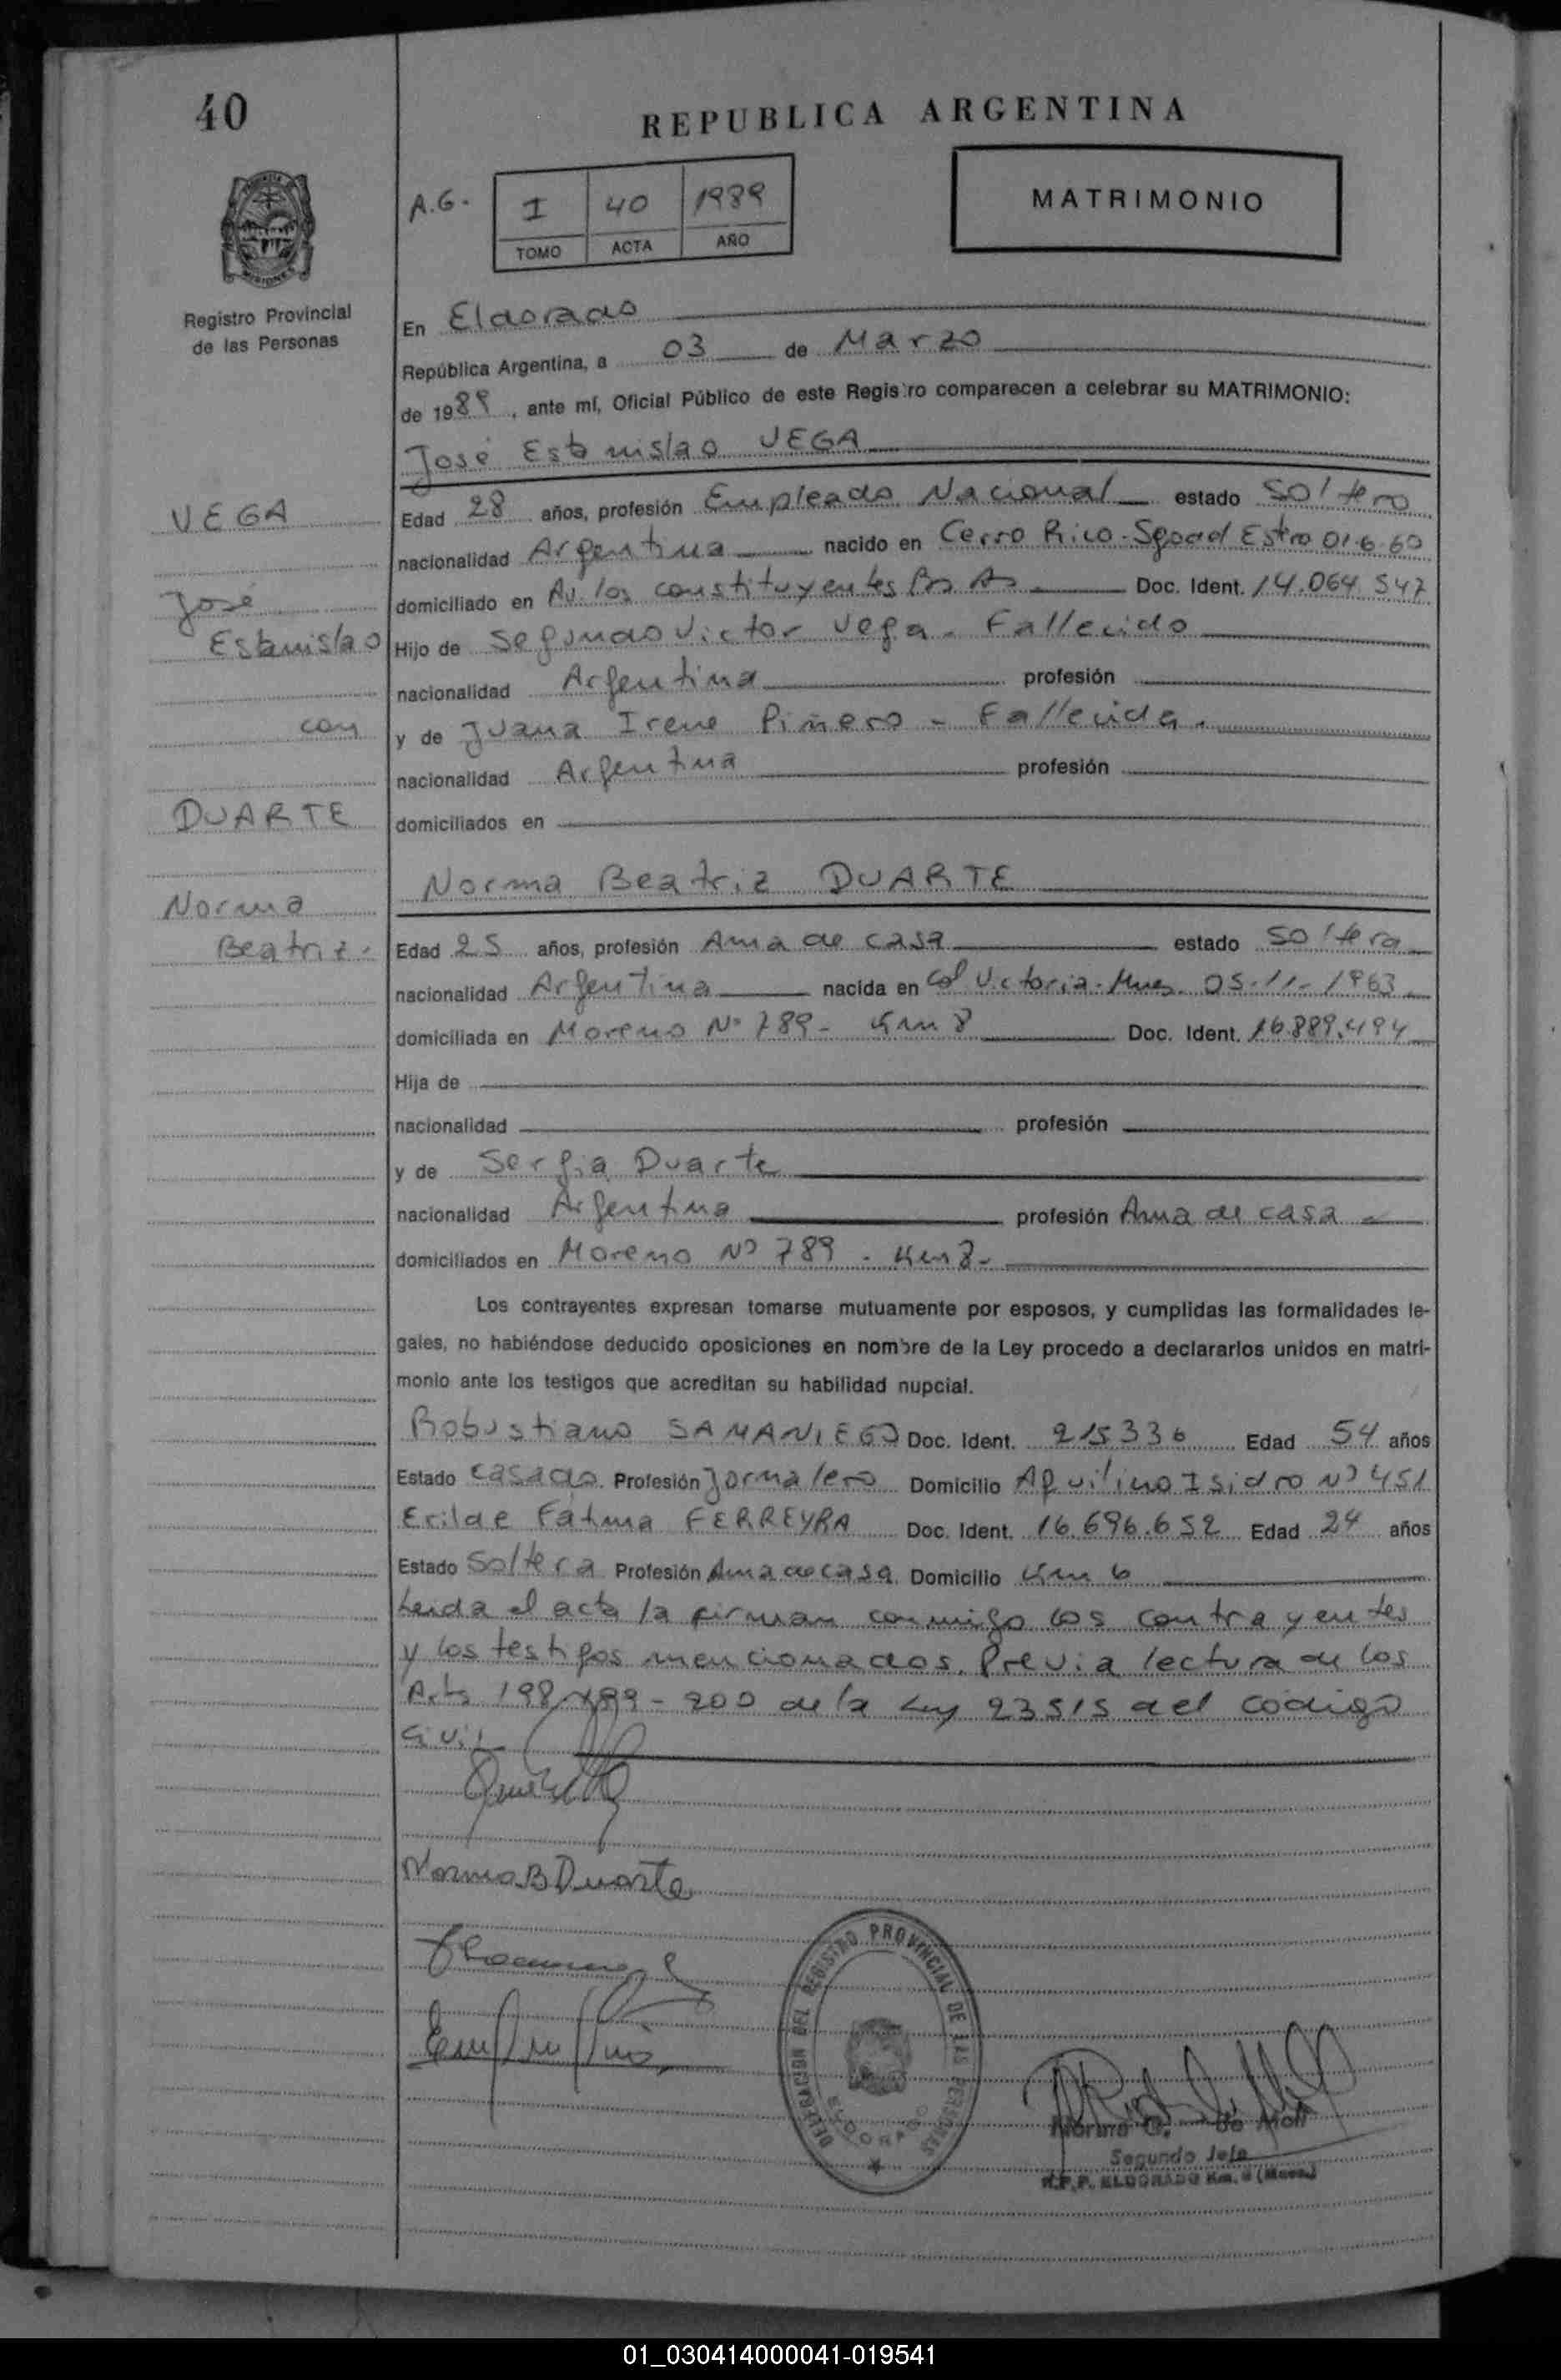 40
REPUBLICA ARGENTINA
A.G.
I 40 1989
TOMO ACTA AÑO
MATRIMONIO
MISIONES
Registro Provincial
de las Personas
En Eldorado
República Argentina, a 03 de Marzo
de 1989, ante mí, Oficial Público de este Registro comparecen a celebrar su MATRIMONIO:
José Estanislao VEGA
VEGA
José
Estanislao
con
DUARTE
Norma
Beatriz.
Edad 28 años, profesión Empleado Nacional estado soltero
nacionalidad Argentina nacido en Cerro Rico - Sgo del Estro 01-6-60
domiciliado en Av. los constituyentes Bs As Doc. Ident. 14.064.547
Hijo de Segundo Victor Vega - Fallecido
nacionalidad Argentina profesión
y de Juana Irene Piñero - Fallecida.
nacionalidad Argentina profesión
domiciliados en
Norma Beatriz DUARTE
Edad 25 años, profesión Ama de casa estado soltera
nacionalidad Argentina nacida en Col Victoria - Mnes. 05-11-1963
domiciliada en Moreno Nº 789 - Km 8 Doc. Ident. 16.889.494
Hija de
nacionalidad profesión
y de Sergia Duarte
nacionalidad Argentina profesión Ama de casa
domiciliados en Moreno Nº 789 - Km 8-
Los contrayentes expresan tomarse mutuamente por esposos, y cumplidas las formalidades le-
gales, no habiéndose deducido oposiciones en nombre de la Ley procedo a declararlos unidos en matri-
monio ante los testigos que acreditan su habilidad nupcial.
Robustiano SAMANIEGO Doc. Ident. 215336 Edad 54 años
Estado casado Profesión Jornalero Domicilio Aquilino Isidro Nº 451
Erilde Fátima FERREYRA Doc. Ident. 16.696.652 Edad 24 años
Estado Soltera Profesión Ama de casa Domicilio Km 6
Leida el acta la firman conmigo los contrayentes
y los testigos mencionados. Previa lectura de los
Arts 198-199-200 de la Ley 23515 del código
Civil
Norma B Duarte
DELEGACION DEL REGISTRO PROVINCIAL DE LAS PERSONAS
ELDORADO
Norma G. de Moll
Segundo Jefe
R.P.P. ELDORADO Km. 8 (Mnes.)
01_030414000041-019541